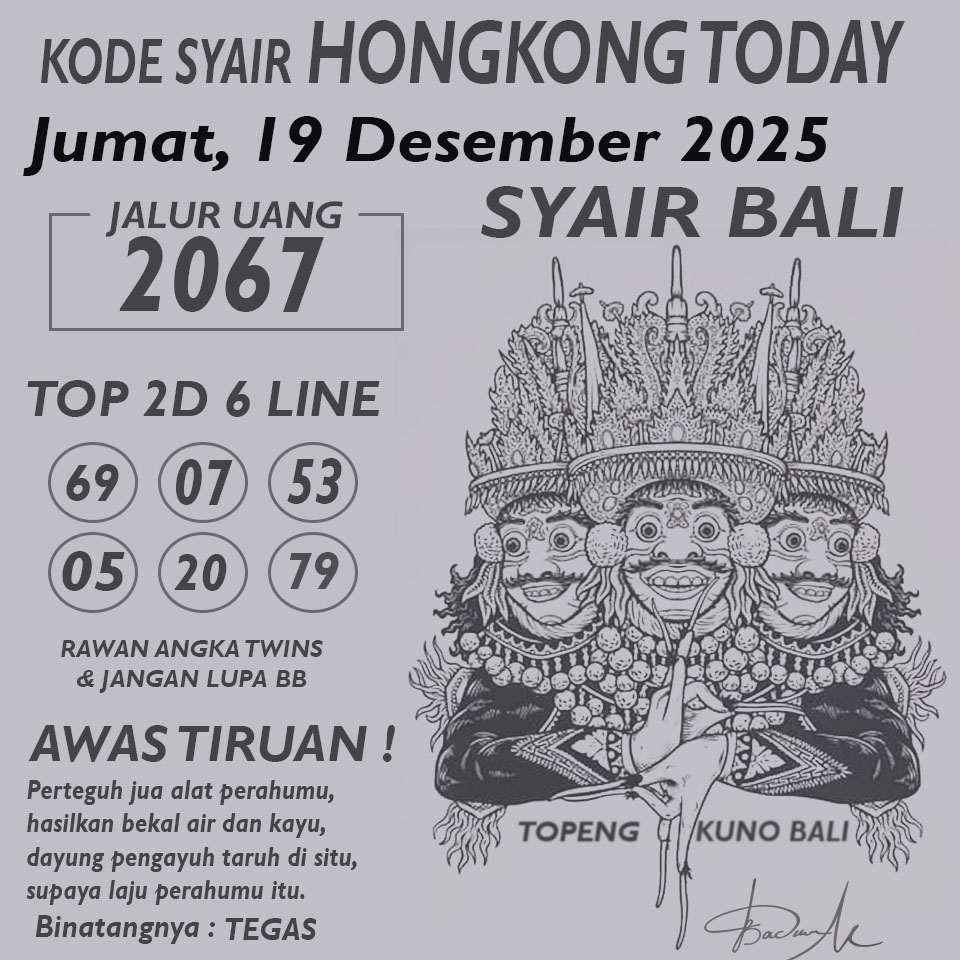 KODE SYAIR HONGKONG TODAY
Jumat, 19 Desember 2025
JALUR UANG
2067
SYAIR BALI
TOP 2D 6 LINE
69 07 53
05 20 79
RAWAN ANGKA TWINS
& JANGAN LUPA BB
AWAS TIRUAN !
Perteguh jua alat perahumu,
hasilkan bekal air dan kayu,
dayung pengayuh taruh di situ,
supaya laju perahumu itu.
Binatangnya : TEGAS
TOPENG KUNO BALI